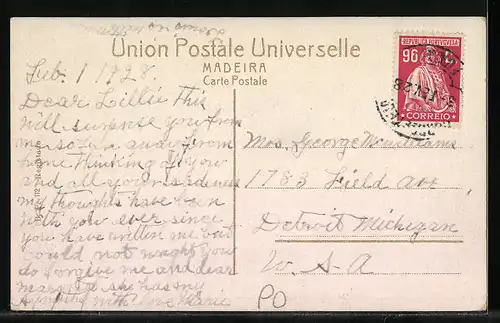 Union Postale Universelle
MADEIRA
Carte Postale
REPUBLICA PORTUGUESA
96 C.
CORREIO
Feb. 1 1928.
Dear Lillie This
will surprise you from
me so far away from
home Thinking of you
and all your sadness
my thoughts have been
with you ever since
you have written me but
could not wright you
do forgive me and dear
she has my
sympathy with love Marie
Mrs. George
1783 Field Ave
Detroit Michigan
U-S-A
PO